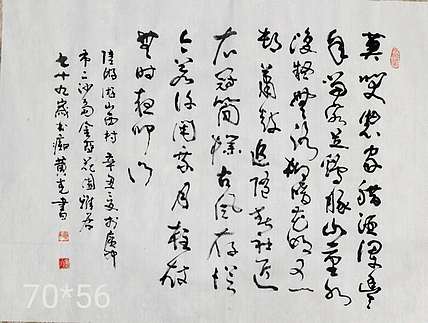 莫笑農家臘酒渾豐
年留客足雞豚山重水
復疑無路柳暗花明又一
村簫鼓追隨春社近
衣冠簡樸古風存從
今若許閑乘月拄杖
無時夜叩門
陸游游山西村 辛丑夏於廣州
市二沙島金亞花園雅居
七十九歲書痴黄克書
70*56